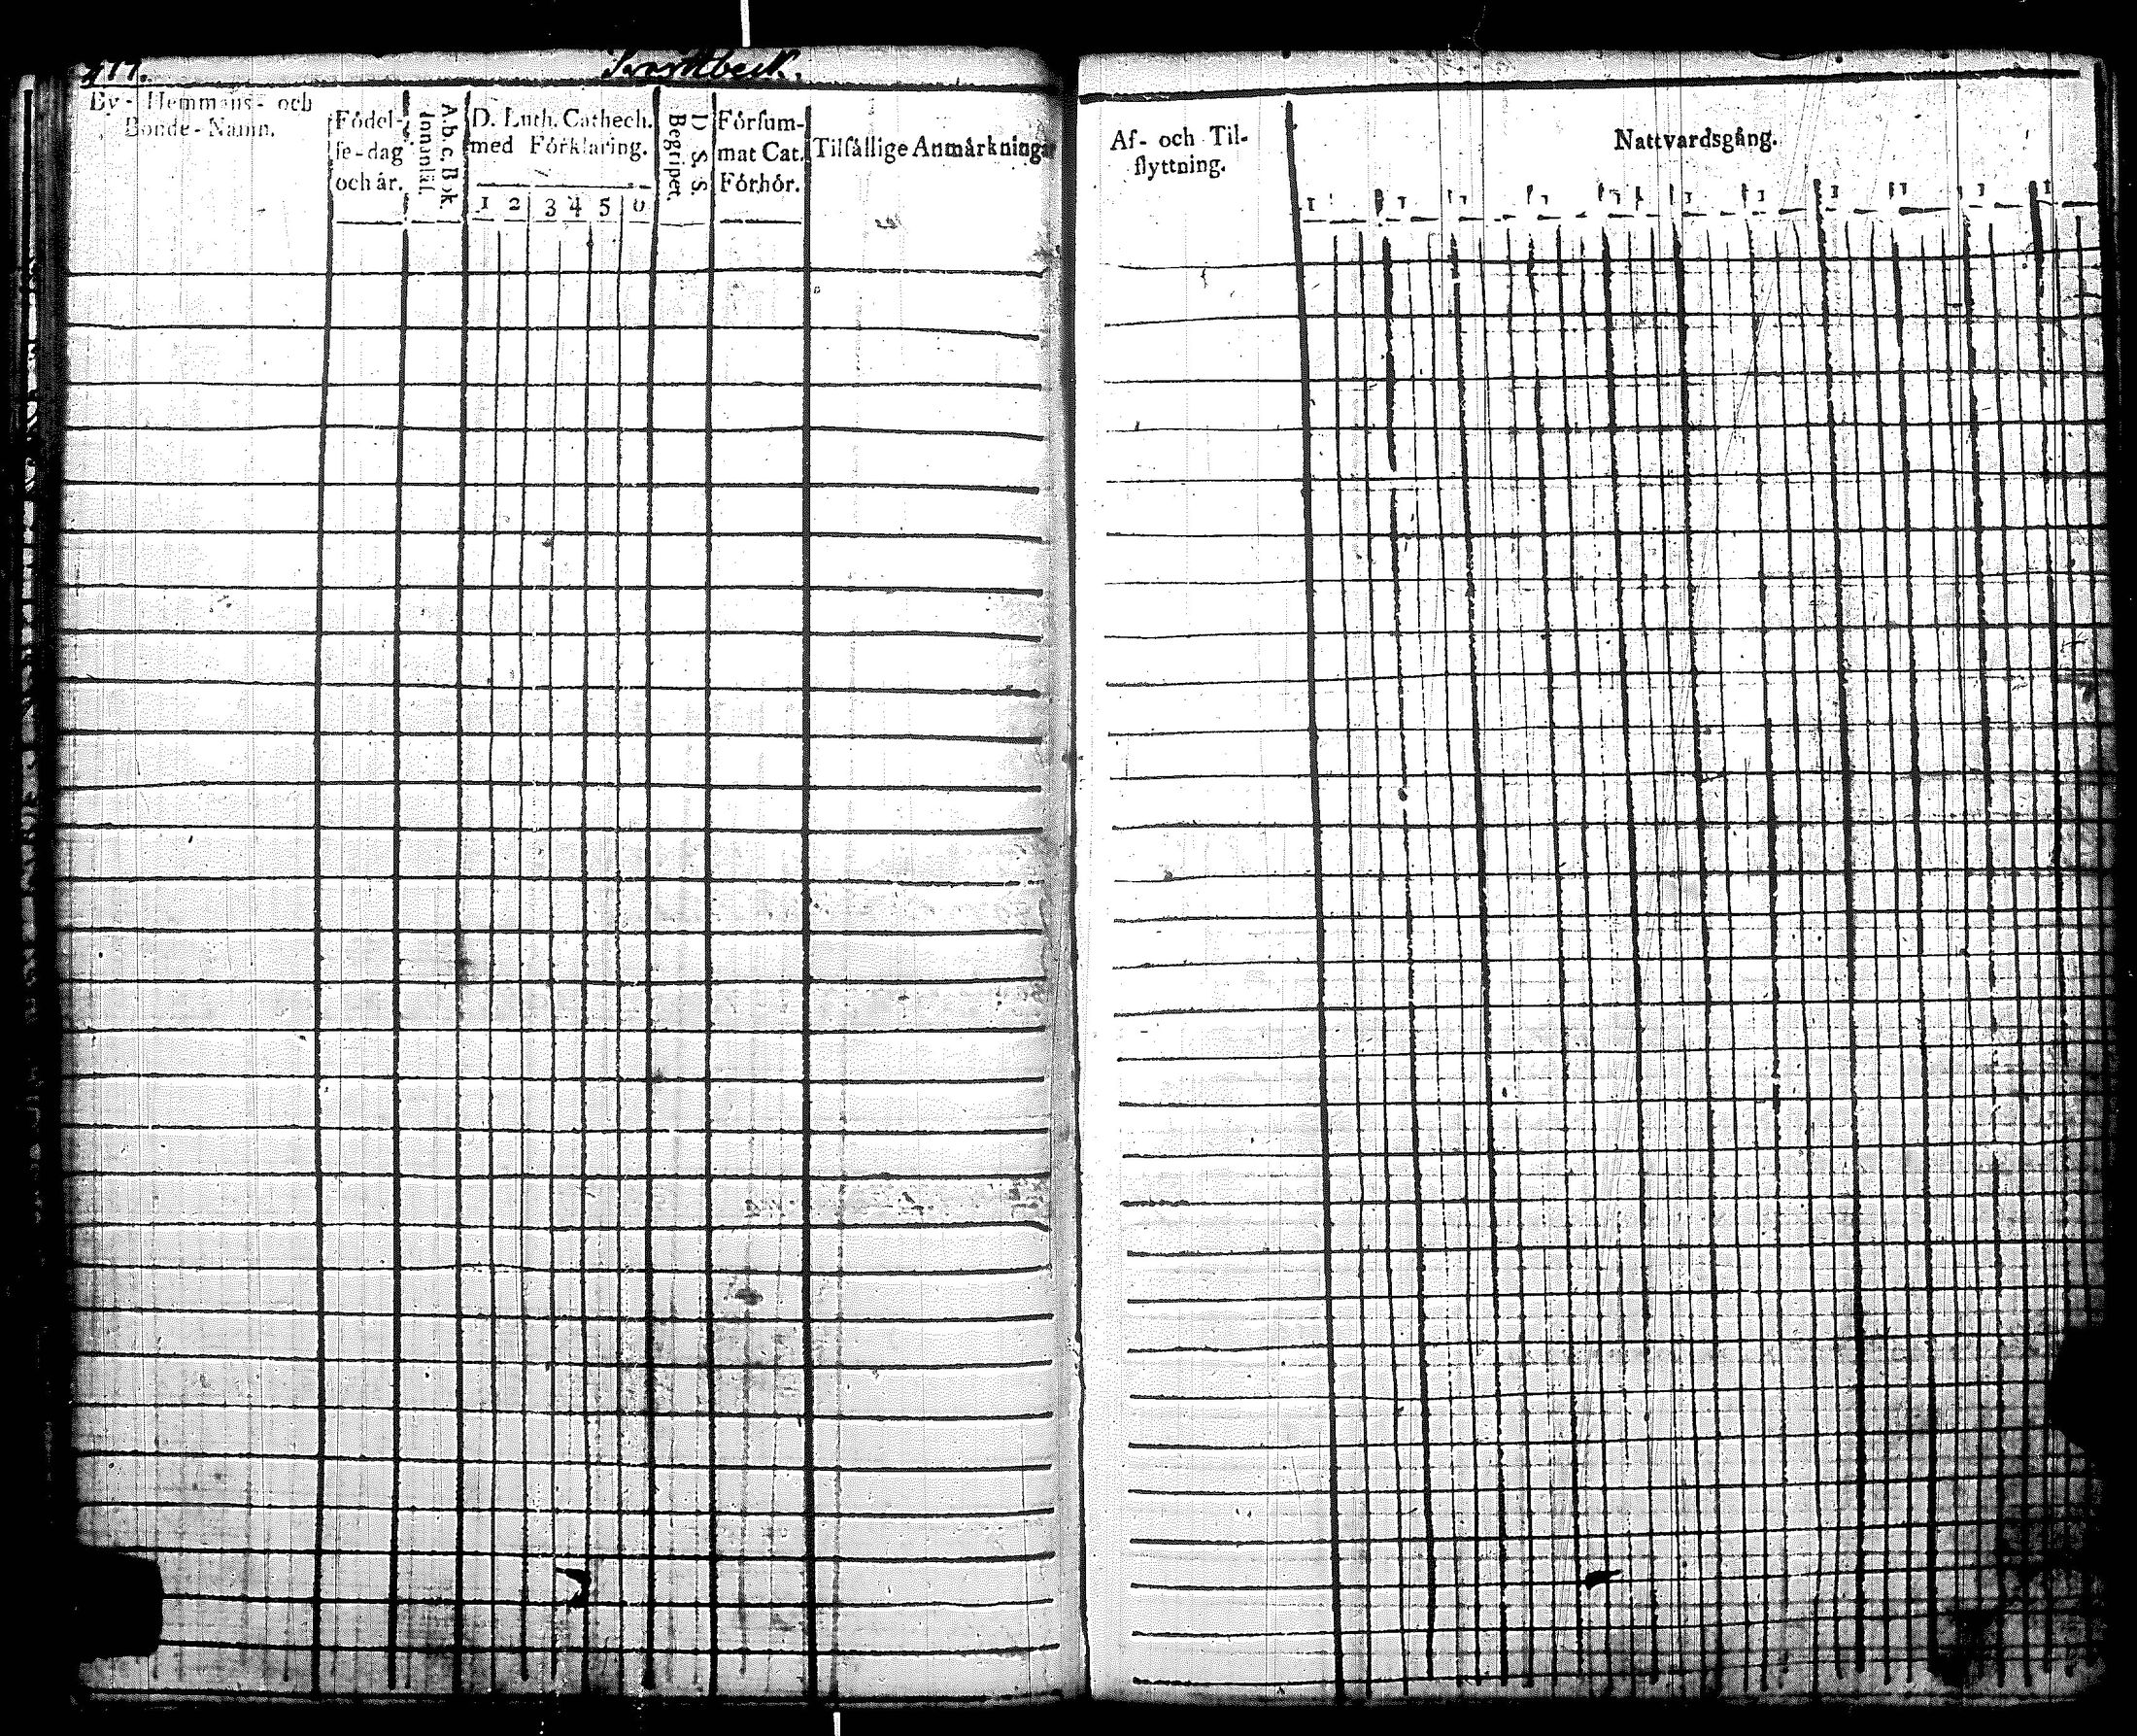 By- Hemmans- och
Bonde-Namn.
Födel-
se-dag
och år.
A b c Bok
Innanläs.
D. Luth. Cathech.
med Förklaring.
1 2 3 4 5 6
D. S. S.
Begripet.
Försum-
mat Cat.
Förhör.
Tilfällige Anmärkningar
Af- och Til-
flyttning.
Nattvardsgång.